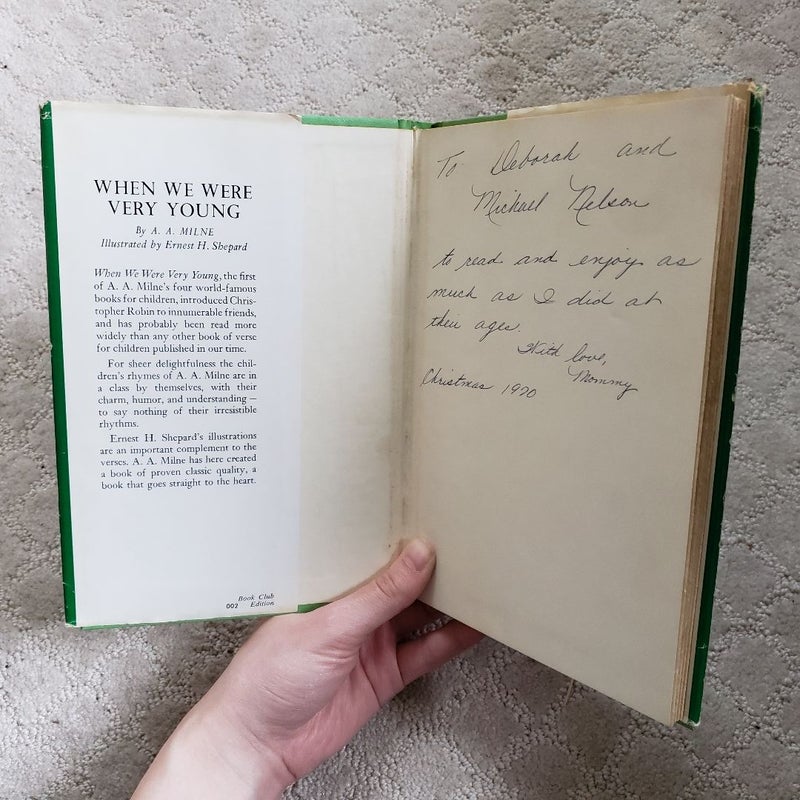 WHEN WE WERE
VERY YOUNG
By A. A. MILNE
Illustrated by Ernest H. Shepard
When We Were Very Young, the first
of A. A. Milne's four world-famous
books for children, introduced Chris-
topher Robin to innumerable friends,
and has probably been read more
widely than any other book of verse
for children published in our time.
For sheer delightfulness the chil-
dren's rhymes of A. A. Milne are in
a class by themselves, with their
charm, humor, and understanding —
to say nothing of their irresistible
rhythms.
Ernest H. Shepard's illustrations
are an important complement to the
verses. A. A. Milne has here created
a book of proven classic quality, a
book that goes straight to the heart.
Book Club
002 Edition
To Deborah and
Michael Nelson
to read and enjoy as
much as I did at
their ages.
With love,
Mommy
Christmas 1970